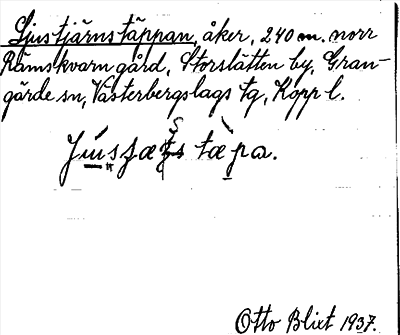 Ljustjärnstäppan, åker, 240 m. norr
Rämskvarn gård, Storslätten by, Gran-
gärde sn, Västerbergslags tg, Kopp l.
Otto Blixt 1937.